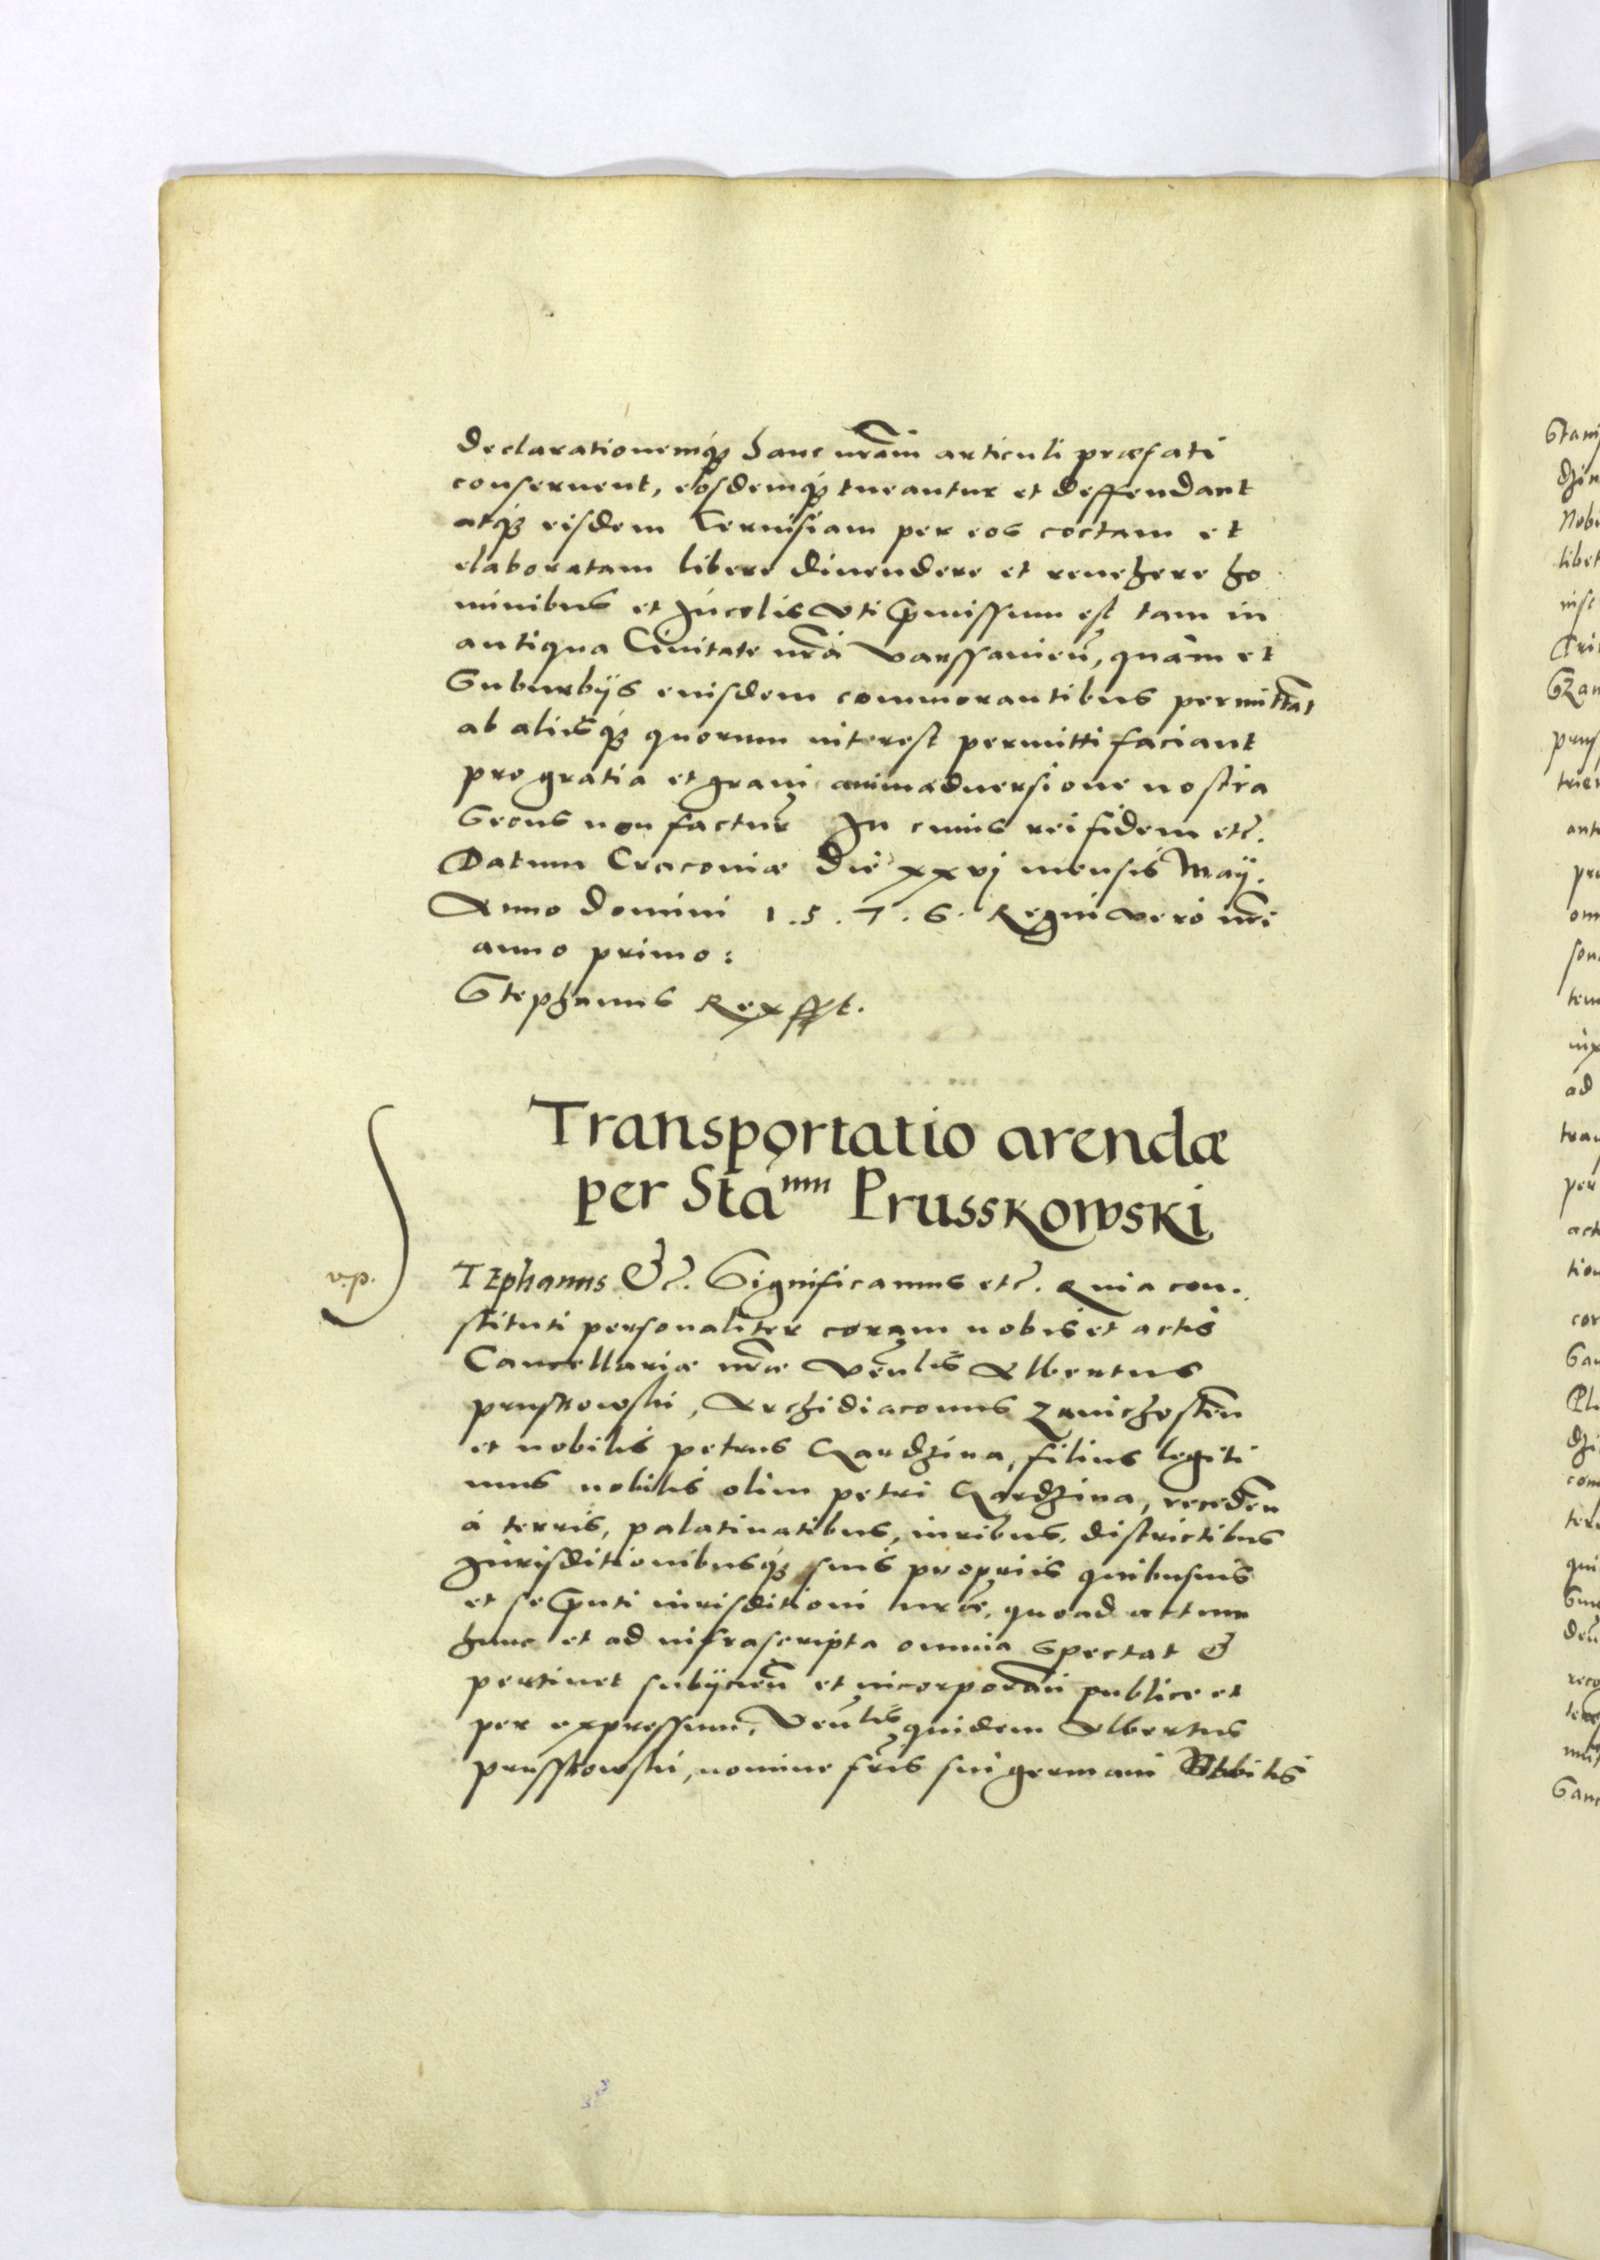 declarationemq₃ hanc nrãm articuli præfati
conseruent, eosdemq₃ tueantur et deffendant
atq₃ eisdem Ceruisiam per eos coctam et
elaboratam libere diuendere et reuehere ho
minibus et Incolis vti p̃missum est tam in
antiqua Ciuitate nrã Varssauieñ, quam et
Suburbijs euisdem commorantibus permittãt
ab alijsq₃ quorum interest permitti faciant
pro gratia et graui animaduersione nostra
Secus non factur̃ In cuius rei fidem etc̃.
Datum Cracoviæ die xxvj mensis Maij.
Anno Domini 1.5.7.6. Regni vero nrĩ
anno primo:
Stephanus Rex sst.
Transportatio arendæ
per Staⁿⁿⁿ Prusskowski
v.p.
STEphanus &c̃. Significamus etc̃. Quia con-
stituti personaliter coram nobis et actis
Cancellariæ nr̃æ Veñlis Albertus
pruskowski, Archidiaconus Zawichosteñ
et nobilis petrus Gardzina, filius legiti
mus nobilis olim petri Gardzina, recedeñ
à terris, palatinatibus, iuribus, districtibus
Jurisditionibusq₃ suis propriis quibusuis
et se p̃nti iurisditioni nr̃æ, quoad actum
hunc et ad infrascripta omnia spectat &
pertinet subijcieñ et incorporañ publice et
per expressum, Veñlis quidem Albertus
prusskowski, nomine fr̃is sui germani Nobilis